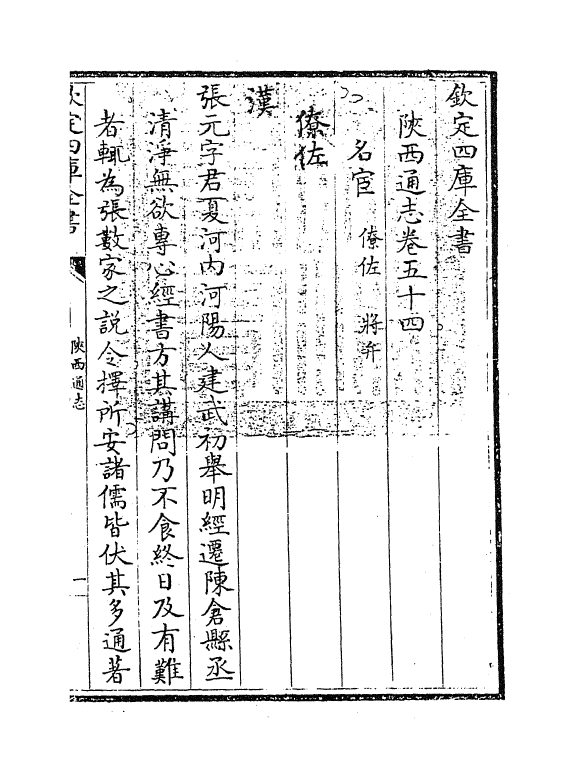 欽定四庫全書
陜西通志卷五十四
名宦　僚佐　將弁
僚佐
漢
張元字君夏河內河陽人建武初舉明經遷陳倉縣丞
清淨無欲專心經書方其講問乃不食終日及有難
者輒為張數家之說令擇所安諸儒皆伏其多通著
欽定四庫全書
陜西通志
一